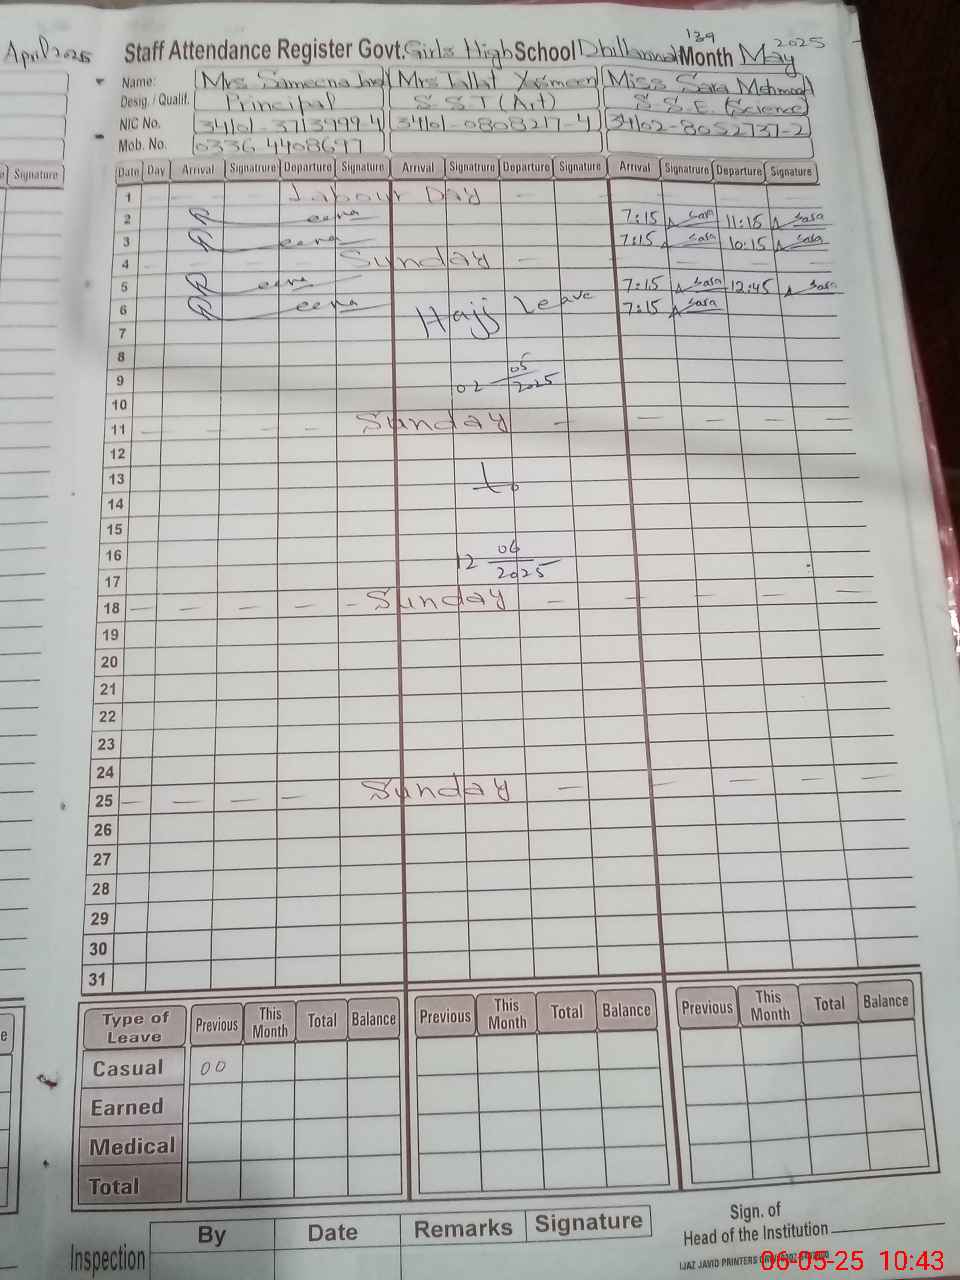 April 2025
139
Staff Attendance Register Govt. Girls High School Month May 2025
Name: Mrs Sameena Mrs Tallat Yasmeen Miss Sara Mehmood
Desig. / Qualif. Principal S.S.T (Art) S.S.E (Science)
NIC No. 34101-3713999-4 34101-0808217-4 34102-8052737-2
Mob. No. 0336 4408697
Signature Date Day Arrival Signatrure Departure Signature Arrival Signatrure Departure Signature Arrival Signatrure Departure Signature
1 Labour Day
2 7:15 Sara 11:15 Sara
3 7:15 Sara 10:15 Sara
4 Sunday
5 7:15 Sara 12:45 Sara
6 Hajj Leave 7:15 Sara
7
8
9 02 05/2025
10
11 Sunday
12
13 to
14
15
16 12 06/2025
17
18 Sunday
19
20
21
22
23
24
25 Sunday
26
27
28
29
30
31
Type of Leave Previous This Month Total Balance Previous This Month Total Balance Previous This Month Total Balance
Casual 00
Earned
Medical
Total
Inspection By Date Remarks Signature
Sign. of
Head of the Institution
IJAZ JAVID PRINTERS
06-05-25 10:43